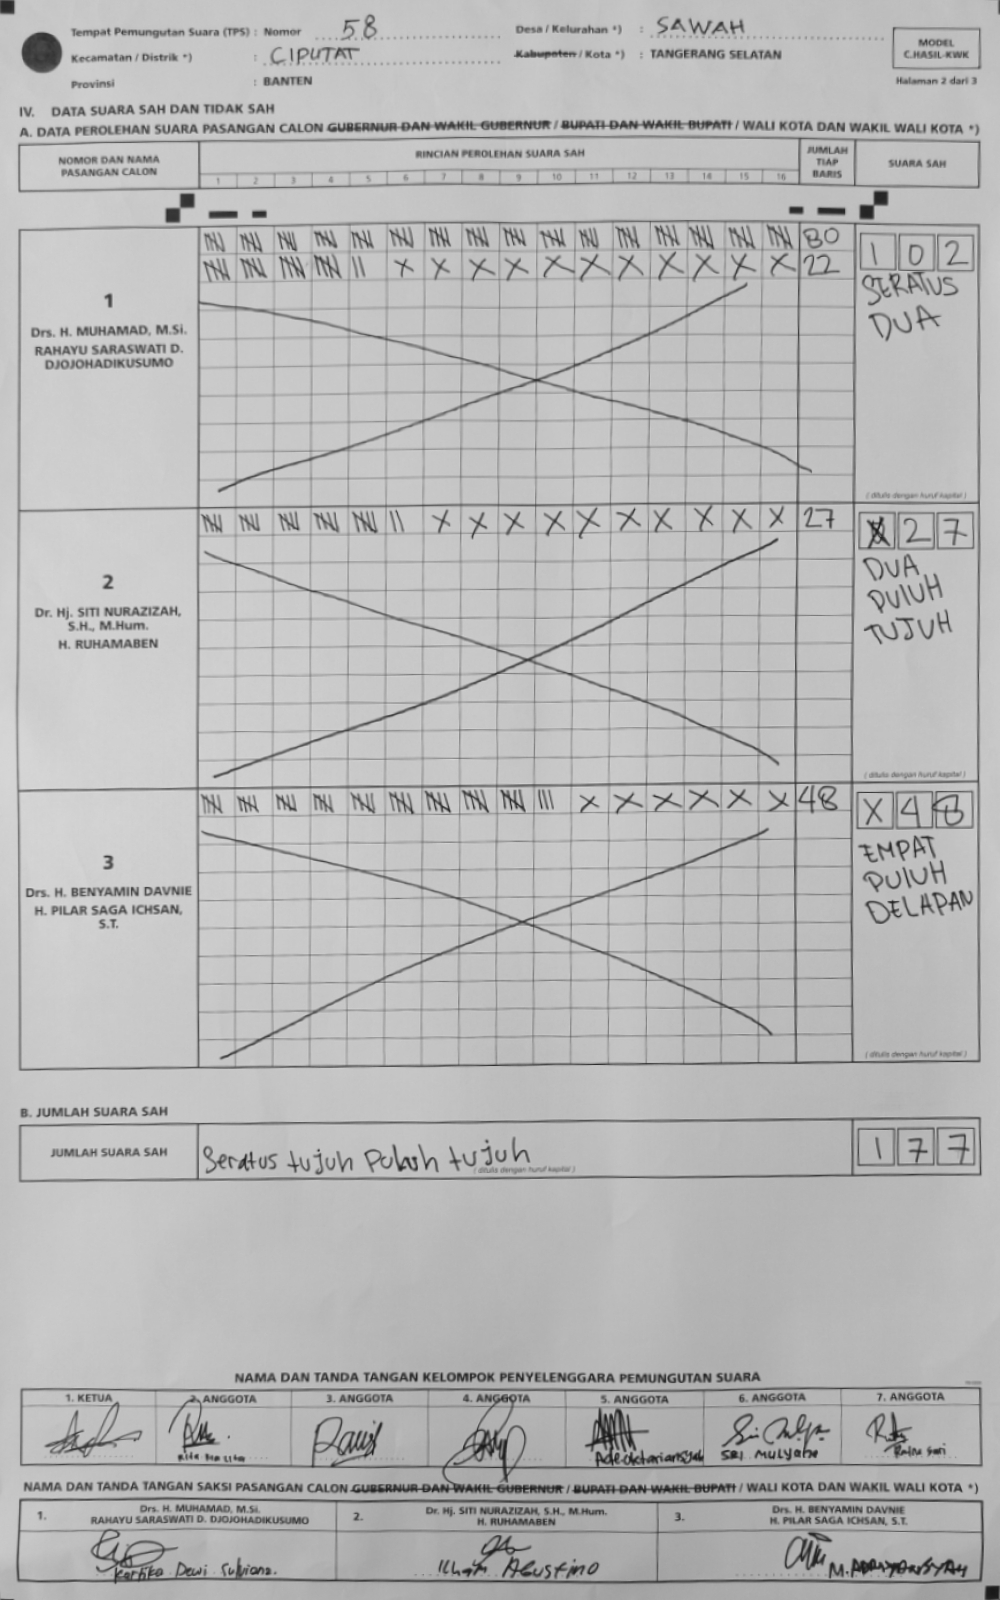 Tempat Pemungutan Suara (TPS) : Nomor 58 Desa / Kelurahan *) : SAWAH
Kecamatan / Distrik *) : CIPUTAT Kabupaten / Kota *) : TANGERANG SELATAN
Provinsi : BANTEN
MODEL
C.HASIL-KWK
Halaman 2 dari 3
IV. DATA SUARA SAH DAN TIDAK SAH
A. DATA PEROLEHAN SUARA PASANGAN CALON GUBERNUR DAN WAKIL GUBERNUR / BUPATI DAN WAKIL BUPATI / WALI KOTA DAN WAKIL WALI KOTA *)
NOMOR DAN NAMA
PASANGAN CALON
RINCIAN PEROLEHAN SUARA SAH
1 2 3 4 5 6 7 8 9 10 11 12 13 14 15 16
JUMLAH
TIAP
BARIS
SUARA SAH
1
Drs. H. MUHAMAD, M.Si.
RAHAYU SARASWATI D.
DJOJOHADIKUSUMO
80
X X X X X X X X X X X 22
1 0 2
SERATUS
DUA
( ditulis dengan huruf kapital )
2
Dr. Hj. SITI NURAZIZAH,
S.H., M.Hum.
H. RUHAMABEN
X X X X X X X X X X 27
X 2 7
DUA
PULUH
TUJUH
( ditulis dengan huruf kapital )
3
Drs. H. BENYAMIN DAVNIE
H. PILAR SAGA ICHSAN,
S.T.
X X X X X X 48
X 4 8
EMPAT
PULUH
DELAPAN
( ditulis dengan huruf kapital )
B. JUMLAH SUARA SAH
JUMLAH SUARA SAH
Seratus tujuh Puluh tujuh
( ditulis dengan huruf kapital )
1 7 7
NAMA DAN TANDA TANGAN KELOMPOK PENYELENGGARA PEMUNGUTAN SUARA
1. KETUA 2. ANGGOTA 3. ANGGOTA 4. ANGGOTA 5. ANGGOTA 6. ANGGOTA 7. ANGGOTA
SRI MULYANE
NAMA DAN TANDA TANGAN SAKSI PASANGAN CALON GUBERNUR DAN WAKIL GUBERNUR / BUPATI DAN WAKIL BUPATI / WALI KOTA DAN WAKIL WALI KOTA *)
1. Drs. H. MUHAMAD, M.Si.
RAHAYU SARASWATI D. DJOJOHADIKUSUMO
2. Dr. Hj. SITI NURAZIZAH, S.H., M.Hum.
H. RUHAMABEN
3. Drs. H. BENYAMIN DAVNIE
H. PILAR SAGA ICHSAN, S.T.
Kartika Dewi
Agustino